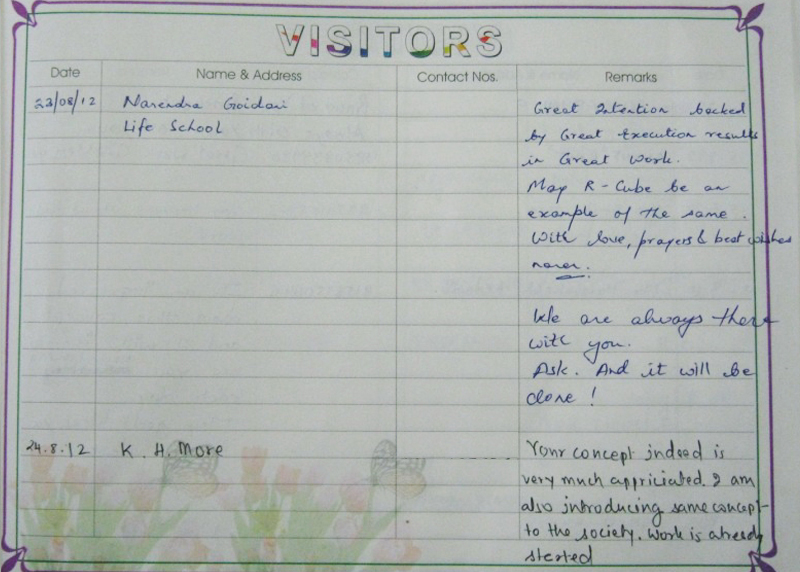 VISITORS
Date Name & Address Contact Nos. Remarks
23/08/12 Narendra Goidani Great Intention backed
Life School by Great Execution results
in Great Work.
May R-Cube be an
example of the same.
With love, prayers & best wishes
naren.
We are always there
with you.
Ask. And it will be
done!
24.8.12 K. H. More Your concept indeed is
very much appriciated. I am
also introducing same concept
to the society. Work is already
started